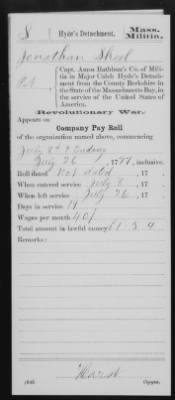 S | Hyde's Detachment. | Mass. Militia.
Jonathan
Pvt , Capt. Amos Rathbun's Co. of Militia in Major Caleb Hyde's Detachment from the County Berkshire in the State of the Massachusetts Bay, in the service of the United States of America.
Revolutionary War.
Appears on
Company Pay Roll
of the organization named above, commencing
July 8th & Ending
July 26, 1777, inclusive.
Roll dated Not dated, 17 .
When entered service July 8, 17 .
When left service July 26, 17 .
Days in service 19
Wages per month 40/
Total amount in lawful money £1 5 4
Remarks:
Copyist.